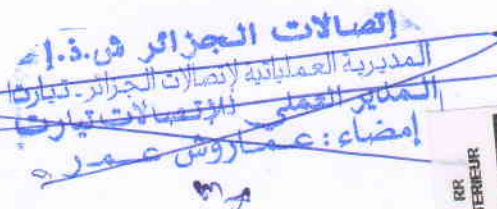 إتصالات الجزائر ش.ذ.إ
المديرية العملياتية لإتصالات الجزائر - تيارت
المدير العملي للإتصالات تيارت
إمضاء : عماروش عمر
RR
TERIEUR